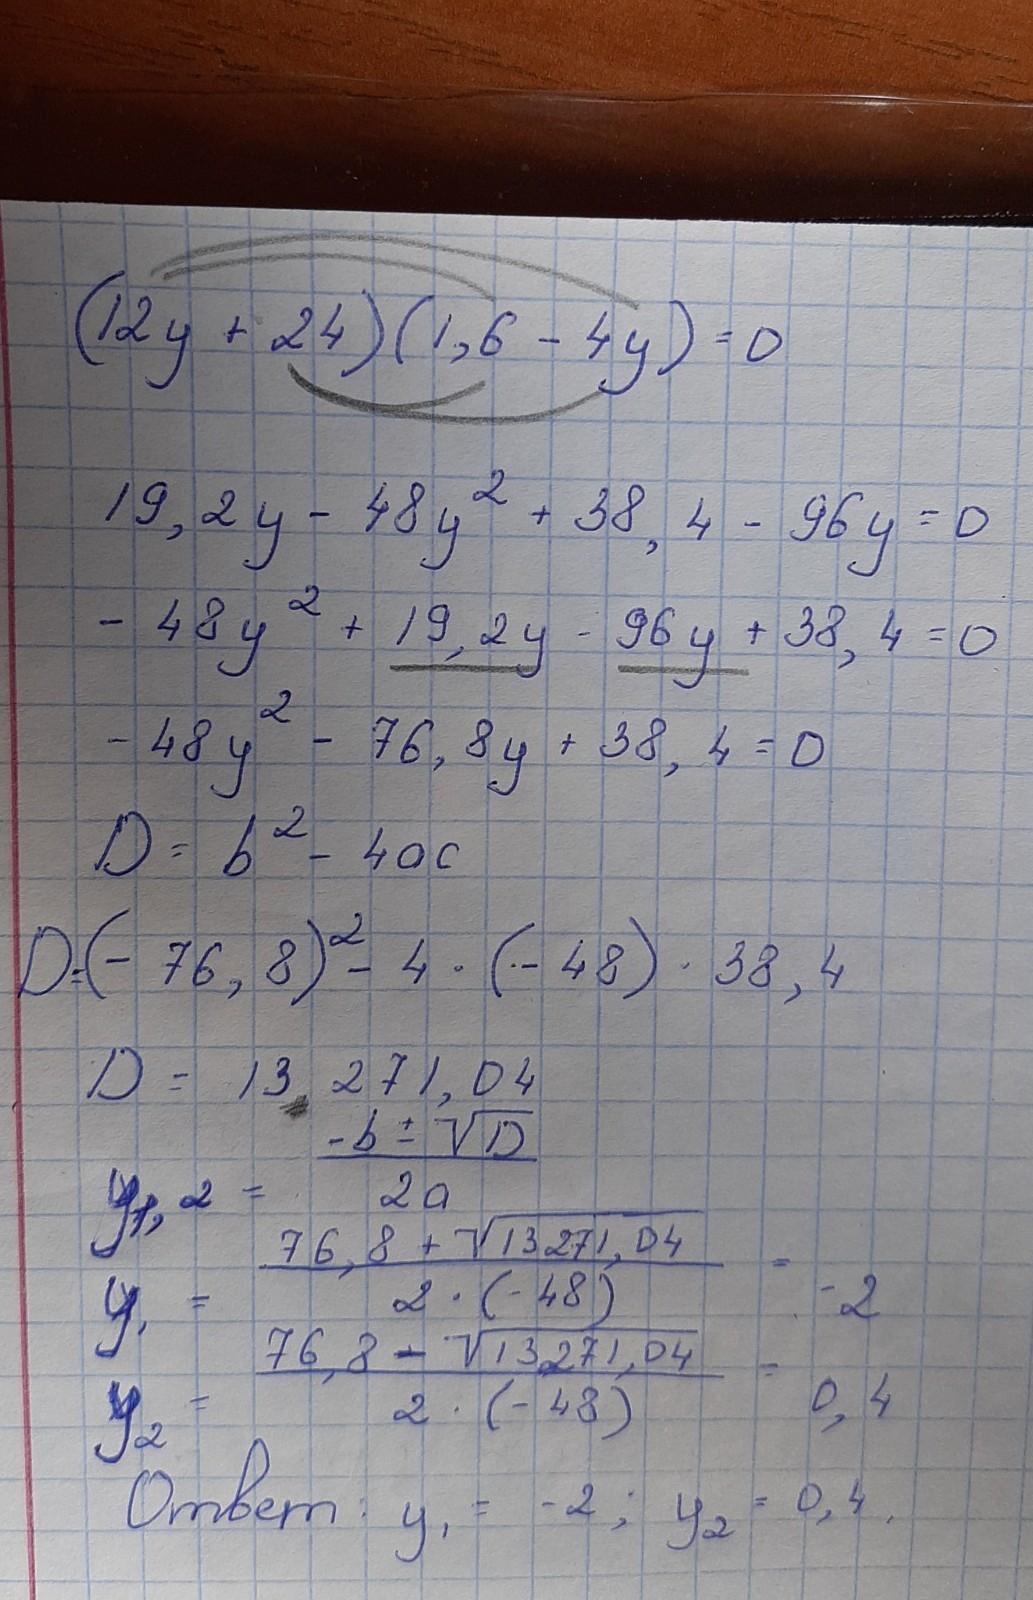 (12y + 24)(1,6 - 4y) = 0
19,2y - 48y² + 38,4 - 96y = 0
- 48y² + 19,2y - 96y + 38,4 = 0
- 48y² - 76,8y + 38,4 = 0
D = b² - 4ac
D = (- 76,8)² - 4 · (- 48) · 38,4
D = 13 271,04
y1,2 = -b ± √D / 2a
y1 = 76,8 + √13271,04 / 2 · (- 48) = -2
y2 = 76,8 - √13271,04 / 2 · (- 48) = 0,4
Ответ: y1 = -2; y2 = 0,4.